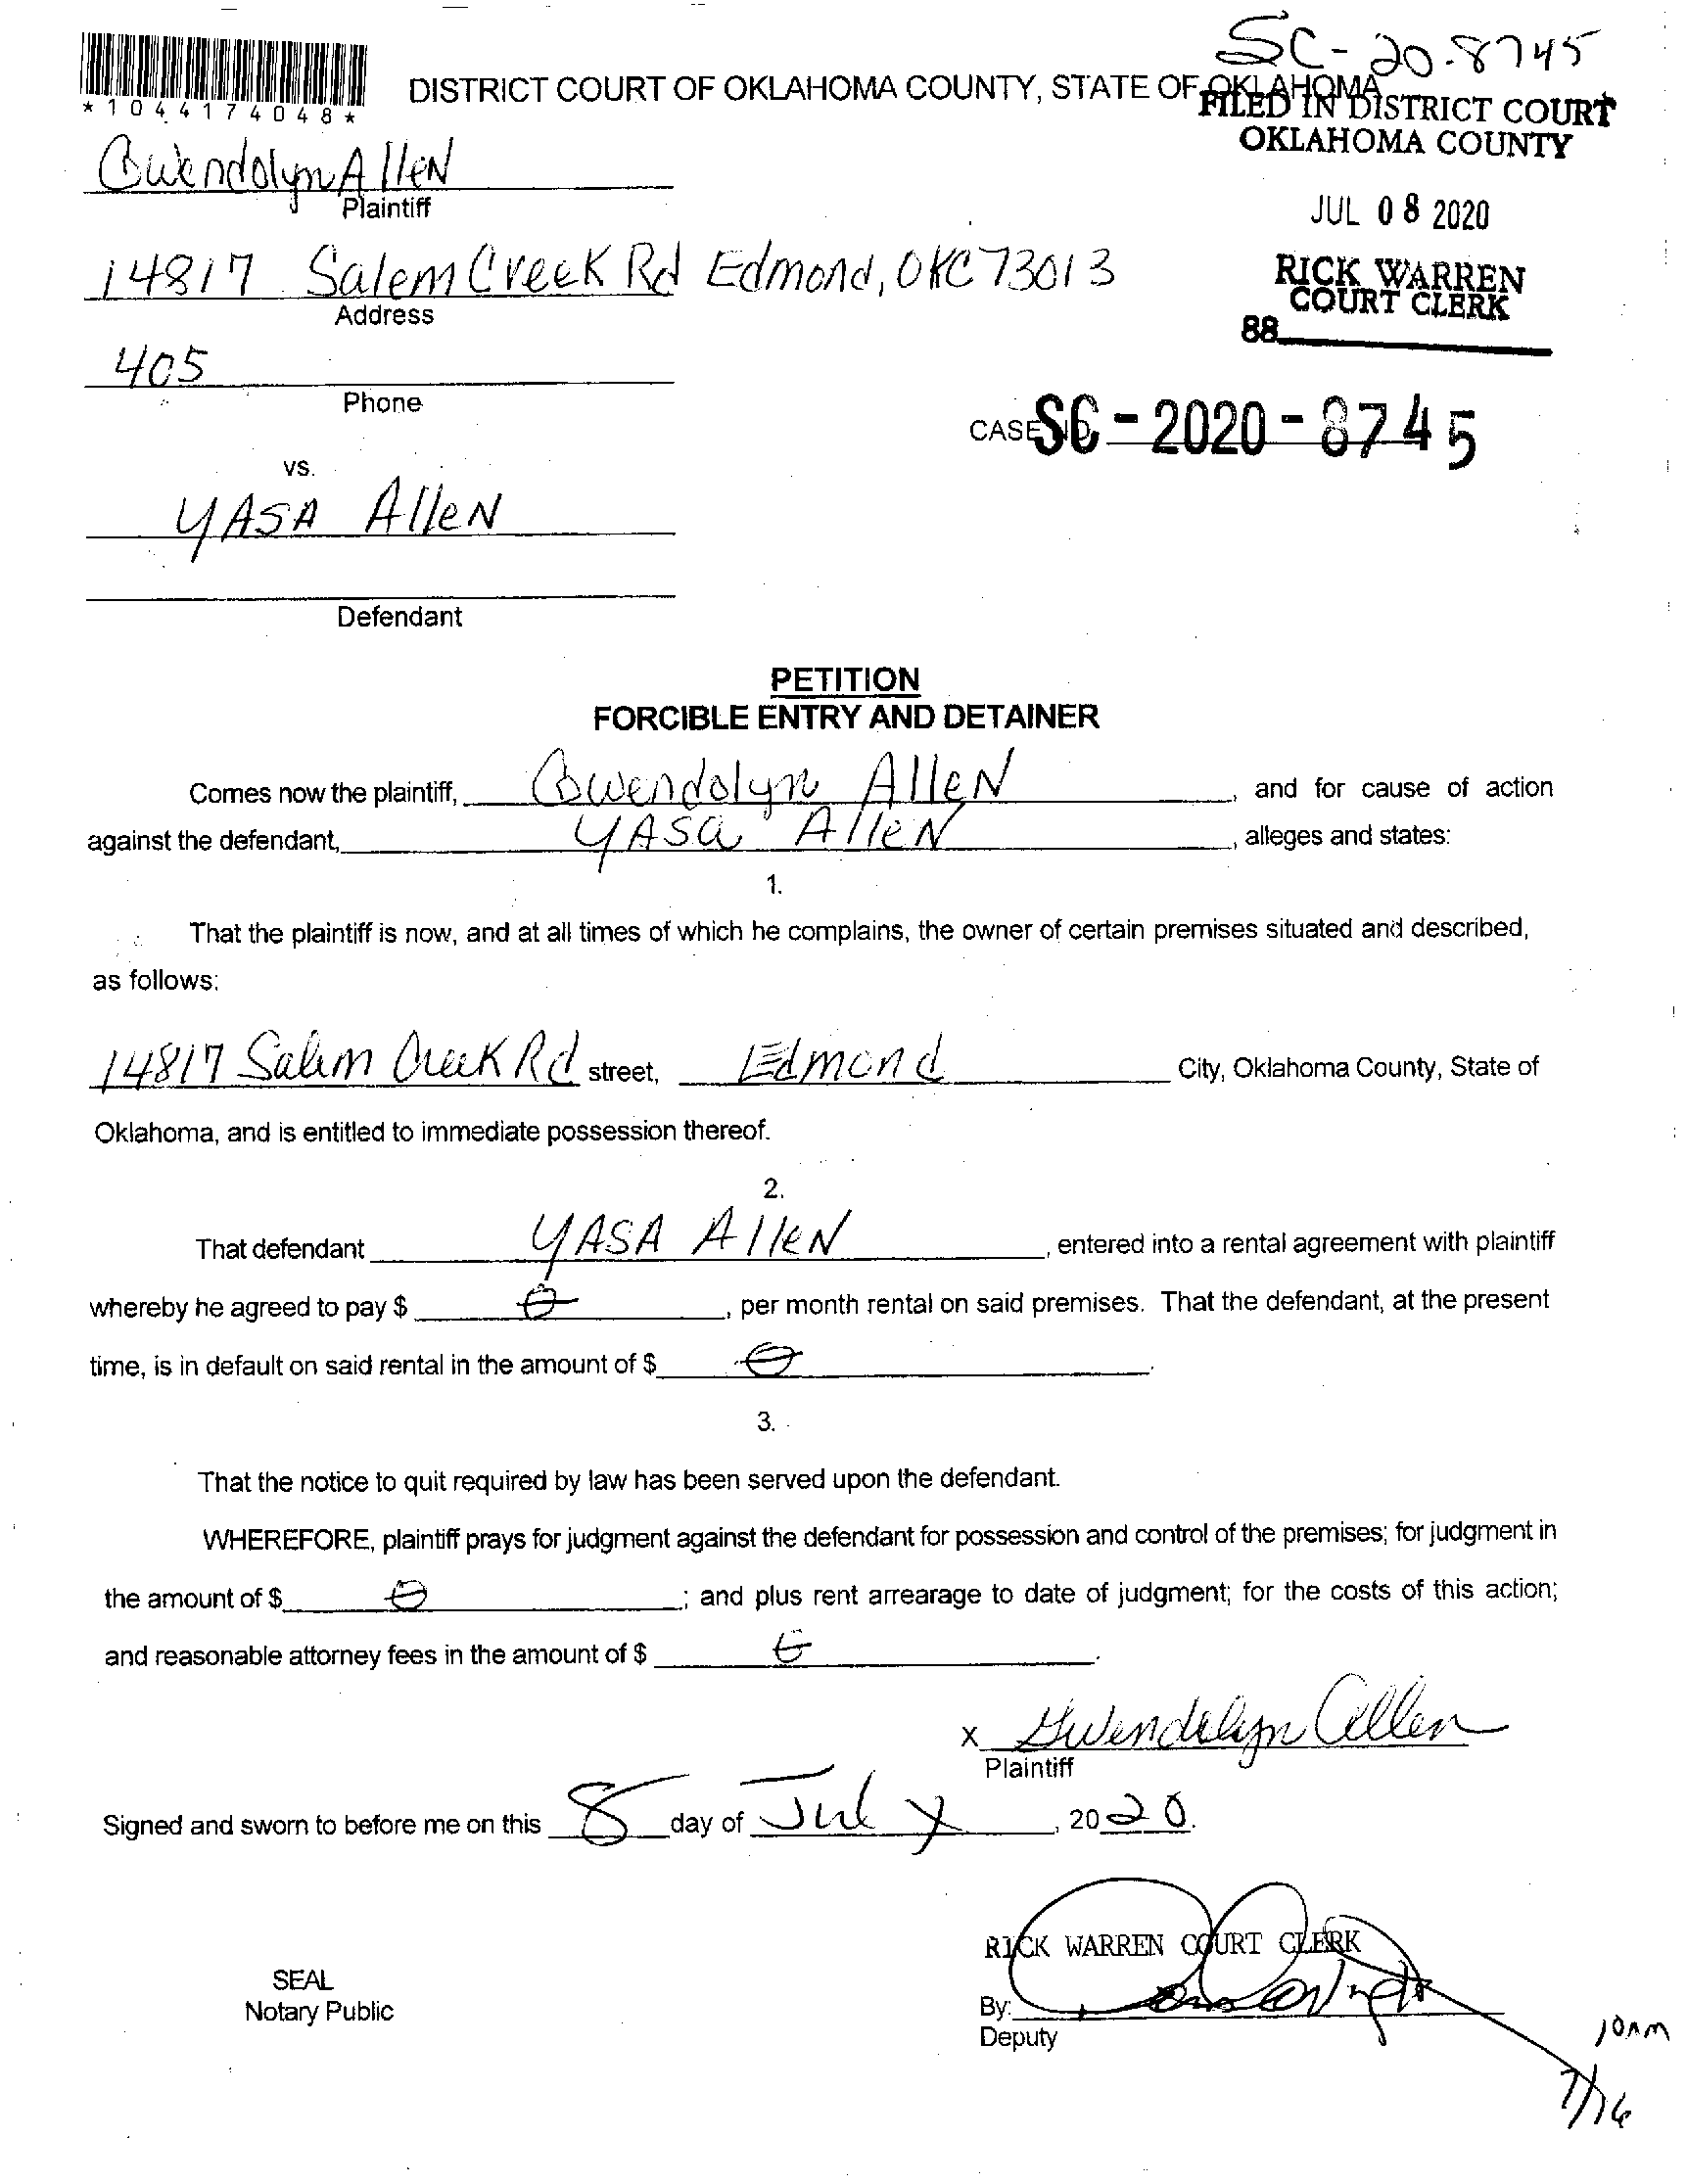 SC-20-8745
*1044174048*
DISTRICT COURT OF OKLAHOMA COUNTY, STATE OF OKLAHOMA
FILED IN DISTRICT COURT
OKLAHOMA COUNTY
JUL 08 2020
RICK WARREN
COURT CLERK
88
Gwendolyn Allen
Plaintiff
14817 Salem Creek Rd Edmond, OKC 73013
Address
405
Phone
CASE NO. SC-2020-8745
vs.
YASA AlleN
Defendant
PETITION
FORCIBLE ENTRY AND DETAINER
Comes now the plaintiff, Gwendolyn AlleN, and for cause of action
against the defendant, YASa AlleN, alleges and states:
1.
That the plaintiff is now, and at all times of which he complains, the owner of certain premises situated and described,
as follows:
14817 Salem Creek Rd street, Edmond City, Oklahoma County, State of
Oklahoma, and is entitled to immediate possession thereof.
2.
That defendant YASA AlleN, entered into a rental agreement with plaintiff
whereby he agreed to pay $ 0, per month rental on said premises. That the defendant, at the present
time, is in default on said rental in the amount of $ 0.
3.
That the notice to quit required by law has been served upon the defendant.
WHEREFORE, plaintiff prays for judgment against the defendant for possession and control of the premises; for judgment in
the amount of $ 0; and plus rent arrearage to date of judgment; for the costs of this action;
and reasonable attorney fees in the amount of $
x Gwendolyn Allen
Plaintiff
Signed and sworn to before me on this 8 day of July, 2020.
RICK WARREN COURT CLERK
SEAL
Notary Public
By:
Deputy
10AM
7/16